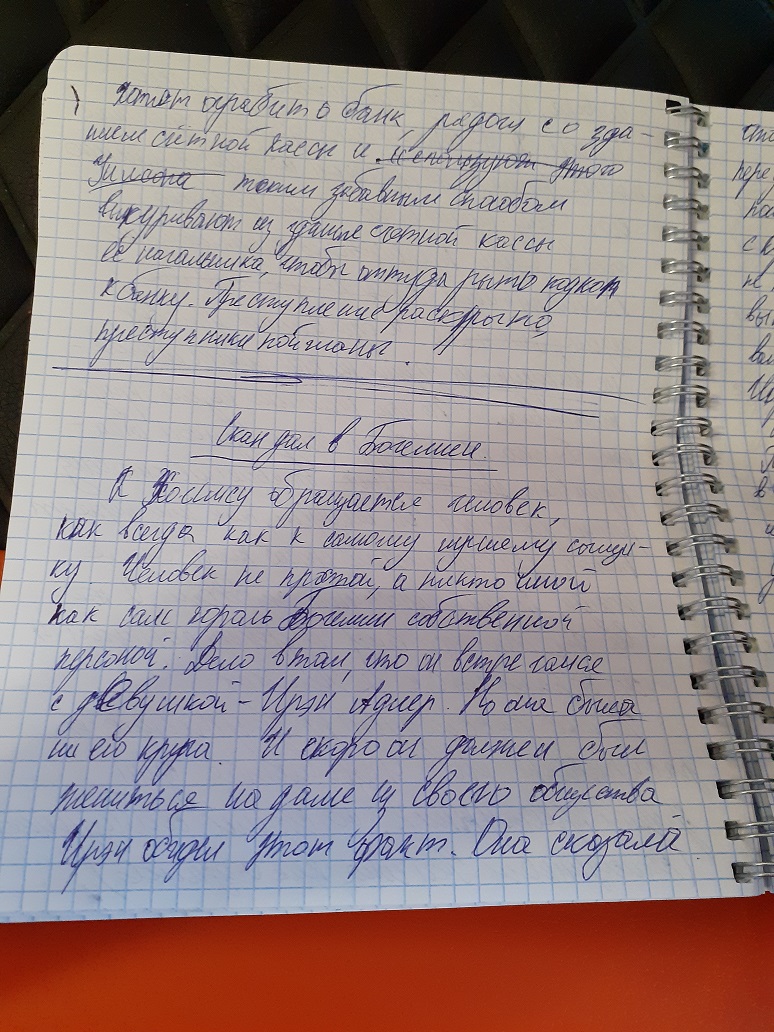 Хотят ограбить банк, рядом со зда-
нием счётной кассы и используют этого
Уилсона таким забавным способом
выкуривают из здания счётной кассы
её начальника, чтобы оттуда рыть подкоп
к банку. Преступление раскрыто,
преступники пойманы.
Скандал в Богемии.
К Холмсу обращается человек,
как всегда как к самому лучшему сыщи-
ку. Человек не простой, а никто иной
как сам король Богемии собственной
персоной. Дело в том, что он встречался
с девушкой - Ирэн Адлер. Но она была
не его круга. И скоро он должен был
жениться на даме из своего общества
Ирэн обидел этот факт. Она сказала
оте
пере
с в
не